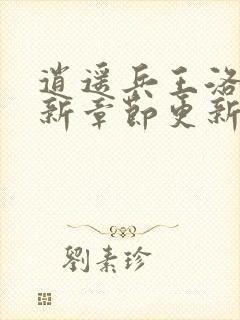 逍遥兵王洛
新章節更新
劉素珍